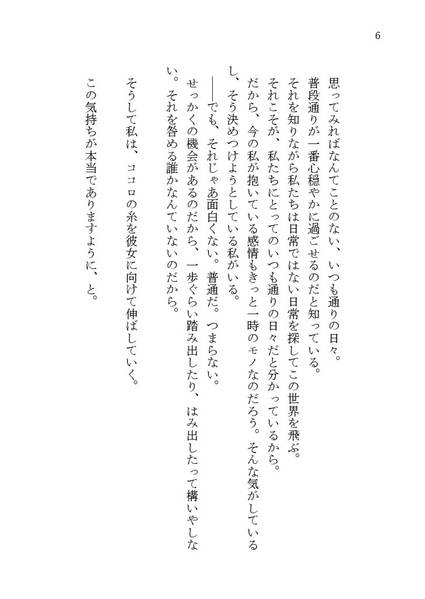 6
思ってみればなんてことのない、いつも通りの日々。
普段通りが一番心穏やかに過ごせるのだと知っている。
それを知りながら私たちは日常ではない日常を探してこの世界を飛ぶ。
それこそが、私たちにとってのいつも通りの日々だと分かっているから。
だから、今の私が抱いている感情もきっと一時のモノなのだろう。そんな気がしている
し、そう決めつけようとしている私がいる。
――でも、それじゃあ面白くない。普通だ。つまらない。
せっかくの機会があるのだから、一歩ぐらい踏み出したり、はみ出したって構いやしな
い。それを咎める誰かなんていないのだから。
そうして私は、ココロの糸を彼女に向けて伸ばしていく。
この気持ちが本当でありますように、と。